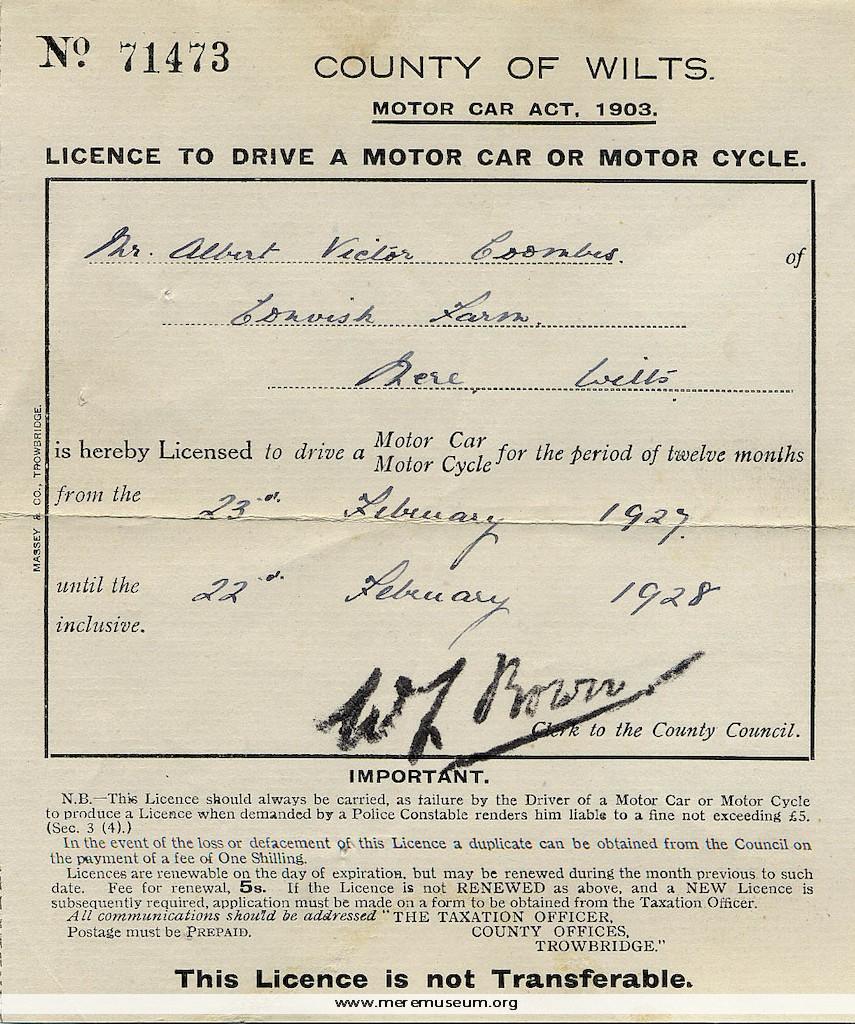 Nº 71473
COUNTY OF WILTS.
MOTOR CAR ACT, 1903.
LICENCE TO DRIVE A MOTOR CAR OR MOTOR CYCLE.
Mr. Albert Victor Coombes. of
Convish Farm.
Mere, Wilts.
is hereby Licensed to drive a Motor Car
Motor Cycle for the period of twelve months
from the 23rd. February 1927.
until the 22nd. February 1928
inclusive.
Clerk to the County Council.
MASSEY & CO., TROWBRIDGE.
IMPORTANT.
N.B.—This Licence should always be carried, as failure by the Driver of a Motor Car or Motor Cycle
to produce a Licence when demanded by a Police Constable renders him liable to a fine not exceeding £5.
(Sec. 3 (4).)
In the event of the loss or defacement of this Licence a duplicate can be obtained from the Council on
the payment of a fee of One Shilling.
Licences are renewable on the day of expiration, but may be renewed during the month previous to such
date. Fee for renewal, 5s. If the Licence is not RENEWED as above, and a NEW Licence is
subsequently required, application must be made on a form to be obtained from the Taxation Officer.
All communications should be addressed "THE TAXATION OFFICER,
Postage must be PREPAID. COUNTY OFFICES,
TROWBRIDGE."
This Licence is not Transferable.
www.meremuseum.org